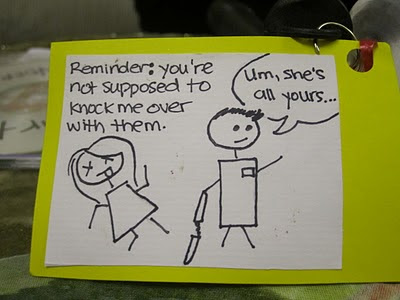 Reminder: you're
not supposed to
knock me over
with them.
Um, she's
all yours...